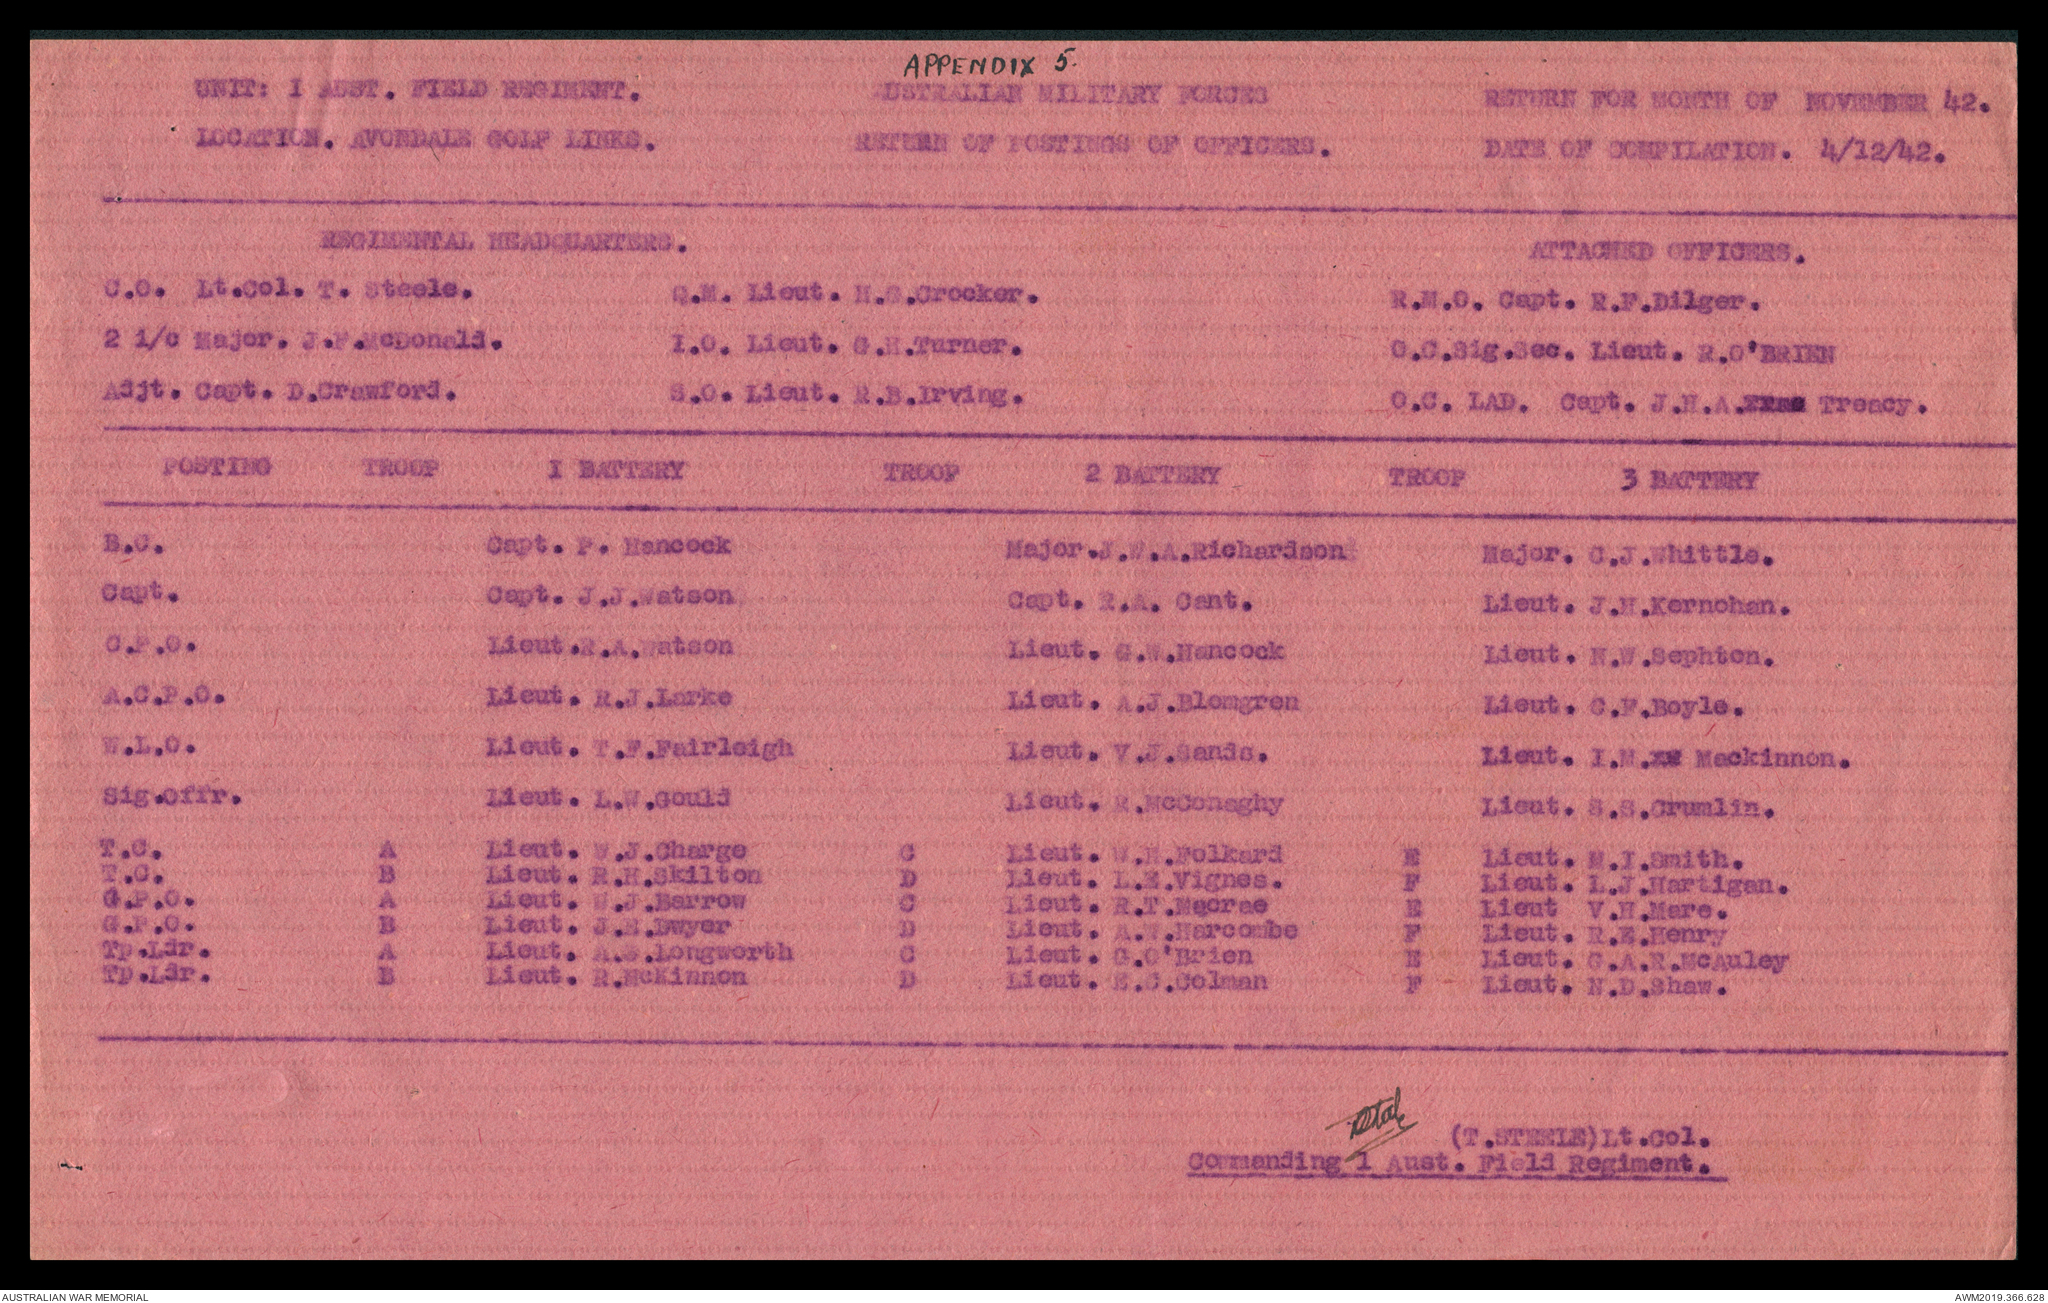 APPENDIX 5.
UNIT: I AUST. FIELD REGIMENT. AUSTRALIAN MILITARY FORCES RETURN FOR MONTH OF NOVEMBER 42.
LOCATION. AVONDALE GOLF LINKS. RETURN OF POSTINGS OF OFFICERS. DATE OF COMPILATION. 4/12/42.
REGIMENTAL HEADQUARTERS. ATTACHED OFFICERS.
C.O. Lt.Col. T. Steele. Q.M. Lieut. H.G.Crocker. R.M.O. Capt. R.F.Dilger.
2 i/c Major. J.F.McDonald. I.O. Lieut. G.H.Turner. O.C.Sig.Sec. Lieut. R.O'BRIEN
Adjt. Capt. D.Crawford. S.O. Lieut. R.B.Irving. O.C. LAD. Capt. J.H.A. Treacy.
POSTING TROOP 1 BATTERY TROOP 2 BATTERY TROOP 3 BATTERY
B.C. Capt. P. Hancock Major.J.W.A.Richardson Major. C.J.Whittle.
Capt. Capt. J.J.Watson Capt. R.A. Cant. Lieut. J.H.Kernohan.
C.P.O. Lieut.R.A.Watson Lieut. G.W.Hancock Lieut. N.W.Sephton.
A.C.P.O. Lieut. R.J.Larke Lieut. A.J.Blomgren Lieut. C.F.Boyle.
W.L.O. Lieut. T.F.Fairleigh Lieut. V.J.Sands. Lieut. I.M. Mackinnon.
Sig.Offr. Lieut. L.W.Gould Lieut. R.McConaghy Lieut. S.S.Crumlin.
T.C. A Lieut. W.J.Charge C Lieut. W.H.Folkard E Lieut. M.I.Smith.
T.C. B Lieut. R.H.Skilton D Lieut. L.E.Vignes. F Lieut. L.J.Hartigan.
G.P.O. A Lieut. W.J.Barrow C Lieut. R.T.Macrae E Lieut V.H.Mare.
G.P.O. B Lieut. J.E.Dwyer D Lieut. A.W.Harcombe F Lieut. R.E.Henry
Tp.Ldr. A Lieut. A.S.Longworth C Lieut. G.O'Brien E Lieut. G.A.R.McAuley
Tp.Ldr. B Lieut. R.McKinnon D Lieut. E.C.Colman F Lieut. N.D.Shaw.
(T.STEELE)Lt.Col.
Commanding 1 Aust. Field Regiment.
AUSTRALIAN WAR MEMORIAL AWM2019.366.628